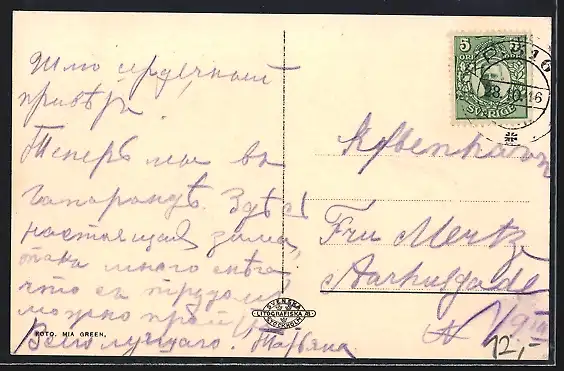 Шлю сердечный
привѣтъ.
Теперь мы въ
Гапарандѣ. Здѣсь
настоящая зима,
такъ много снѣга
что съ трудомъ
можно пройти
Всего лучшаго. Татьяна.
FOTO. MIA GREEN.
SVENSKA
LITOGRAFISKA AB
STOCKHOLM
5 ÖRE
SVERIGE
28.10.16
Kjøbenhavn
Fru Mertz
Aarhusgade
12,-